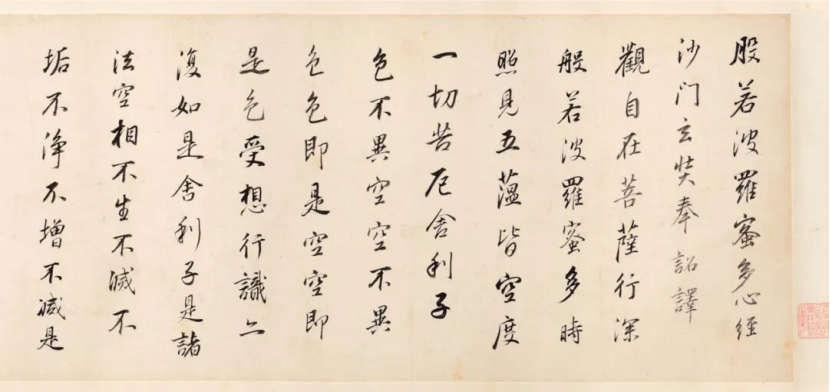 般若波羅蜜多心经
沙门玄奘奉詔譯
觀自在菩薩行深
般若波羅蜜多時
照見五蕴皆空度
一切苦厄舍利子
色不異空空不異
色色即是空空即
是色受想行識亦
復如是舍利子是諸
法空相不生不滅不
垢不浄不增不減是